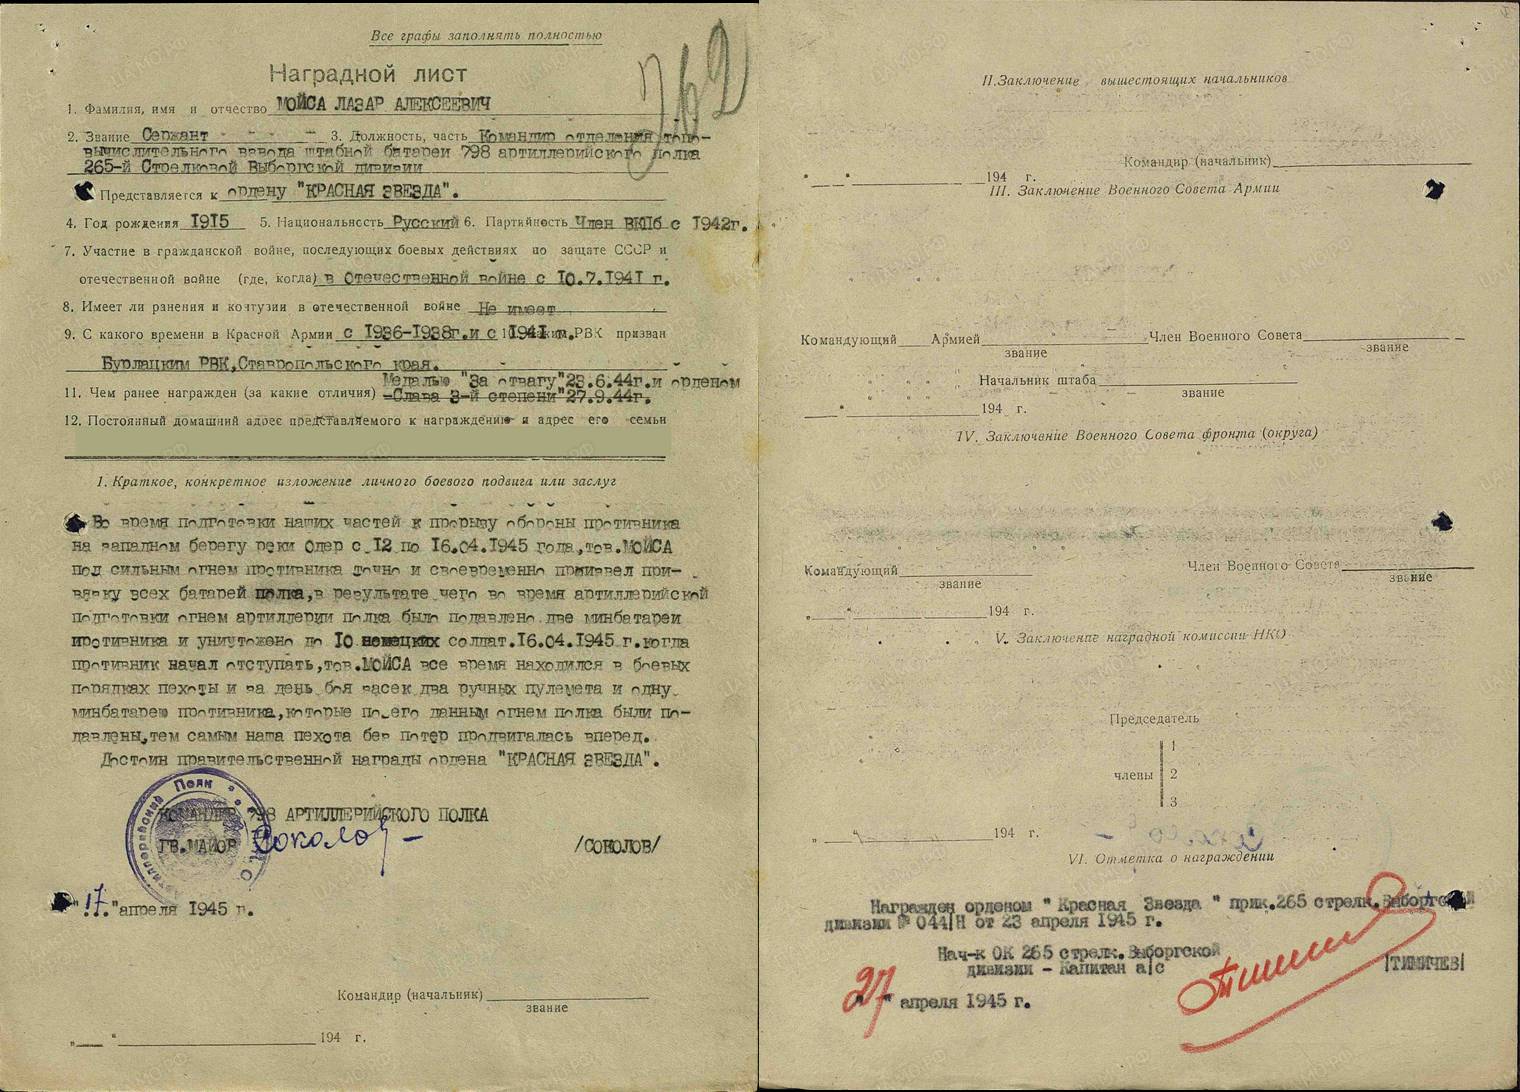 Все графы заполнять полностью
Наградной лист
762
1. Фамилия, имя и отчество МОЙСА ЛАЗАР АЛЕКСЕЕВИЧ
2. Звание Сержант 3. Должность, часть Командир отделения топо-
вычислительного взвода штабной батареи 798 артиллерийского полка
265-й Стрелковой Выборгской дивизии
Представляется к ордену "КРАСНАЯ ЗВЕЗДА".
4. Год рождения 1915 5. Национальность Русский 6. Партийность Член ВКПб с 1942г.
7. Участие в гражданской войне, последующих боевых действиях по защате СССР и
отечественной войне (где, когда) в Отечественной войне с 10.7.1941 г.
8. Имеет ли ранения и контузии в отечественной войне Не имеет
9. С какого времени в Красной Армии с 1936-1938г.и с 1941 г. РВК призван
Бурлацким РВК,Ставропольского края.
Медалью "За отвагу"23.6.44г.и орденом
11. Чем ранее награжден (за какие отличия) "Слава 3-й степени"27.9.44г.
12. Постоянный домашний адрес представляемого к награждению и адрес его семьи
1. Краткое, конкретное изложение личного боевого подвига или заслуг
Во время подготовки наших частей к прорыву обороны противника
на западном берегу реки Одер с 12 по 16.04.1945 года,тов.МОЙСА
под сильным огнем противника точно и своевременно произвел при-
вязку всех батарей полка,в результате чего во время артиллерийской
подготовки огнем артиллерии полка было подавлено две минбатареи
противника и уничтожено до 10 немецких солдат.16.04.1945 г.когда
противник начал отступать,тов.МОЙСА все время находился в боевых
порядках пехоты и за день боя засек два ручных пулемета и одну
минбатарею противника,которые по его данным огнем полка были по-
давлены,тем самым наша пехота без потер продвигалась вперед.
Достоин правительственной награды ордена "КРАСНАЯ ЗВЕЗДА".
КОМАНДИР 798 АРТИЛЛЕРИЙСКОГО ПОЛКА
ГВ.МАЙОР Соколов /СОКОЛОВ/
Артиллерийский Полк
"17."апреля 1945 г.
Командир (начальник)
звание
„ “ 194 г.
II.Заключение вышестоящих начальников
Командир (начальник)
194 г.
III. Заключение Военного Совета Армии
Командующий Армией Член Военного Совета
звание звание
Начальник штаба
звание
194 г.
IV. Заключение Военного Совета фронта (округа)
Командующий Член Военного Совета
звание звание
194 г.
V. Заключение наградной комиссии НКО
Председатель
1
члены 2
3
194 г.
VI. Отметка о награждении
Награжден орденом " Красная Звезда " прик.265 стрелк.Выборгской
дивизии № 044/Н от 23 апреля 1945 г.
Нач-к ОК 265 стрелк.Выборгской
дивизии - Капитан а/с /ТИМИЧЕВ/
"27" апреля 1945 г.